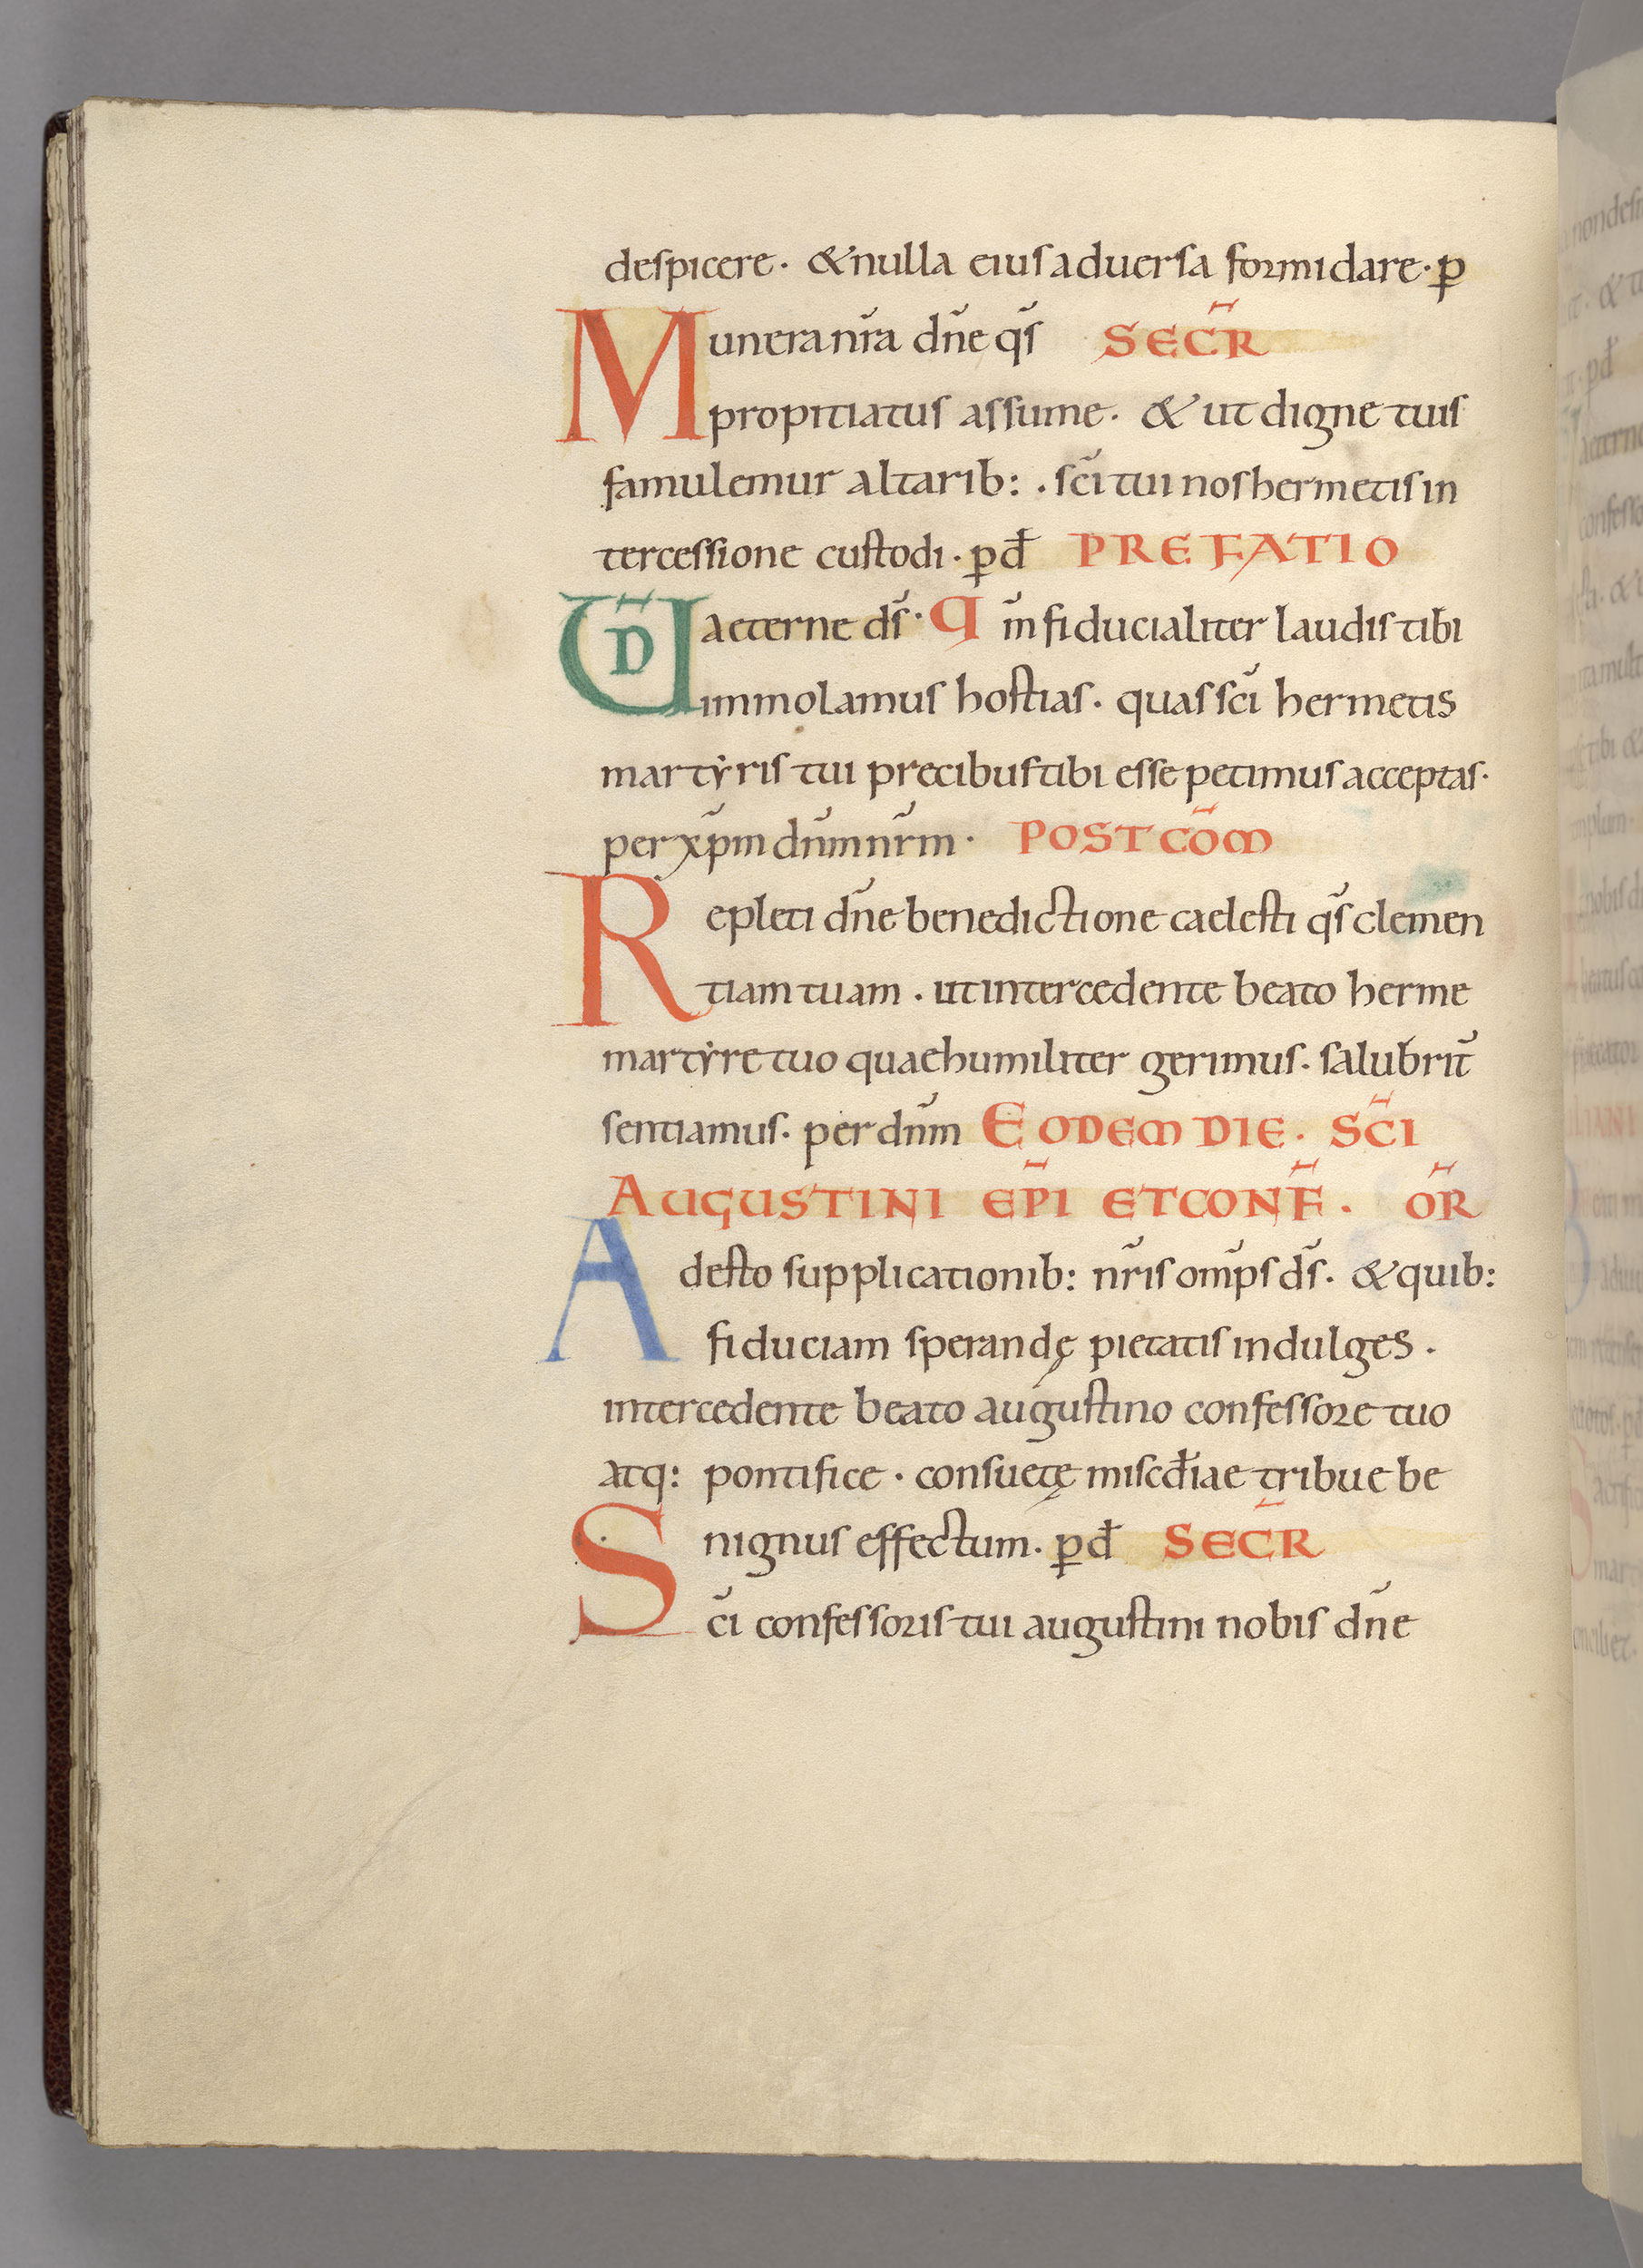 despicere · & nulla eius aduersa formidare · p̲
Munera nr̃a dñe qs̃ SECR̃
propitiatus assume · & ut digne tuis
famulemur altarib: · sc̃i tui nos hermetis in
tercessione custodi · p̲ đ PREFATIO
ŨD aeterne ds̃ · Q̃ in fiducialiter laudis tibi
immolamus hostias · quas sc̃i hermetis
martẏris tui precibus tibi esse petimus acceptas ·
per xp̃m dñm nr̃m · POST COM̃
Repleti dñe benedictione caelesti qs̃ clemen
tiam tuam · ut intercedente beato herme
martẏre tuo quae humiliter gerimus · salubrit̃
sentiamus · per dñm EODEM DIE · SC̃I
AUGUSTINI EP̃I ET CONF̃ · OR̃
Adesto supplicationib: nr̃is om̃ps ds̃ · & quib:
fiduciam sperandę pietatis indulges ·
intercedente beato augustino confessore tuo
atq: pontifice · consuetę miscđiae tribue be
nignus effectum · p̲ đ SECR̃
Sc̃i confessoris tui augustini nobis dñe